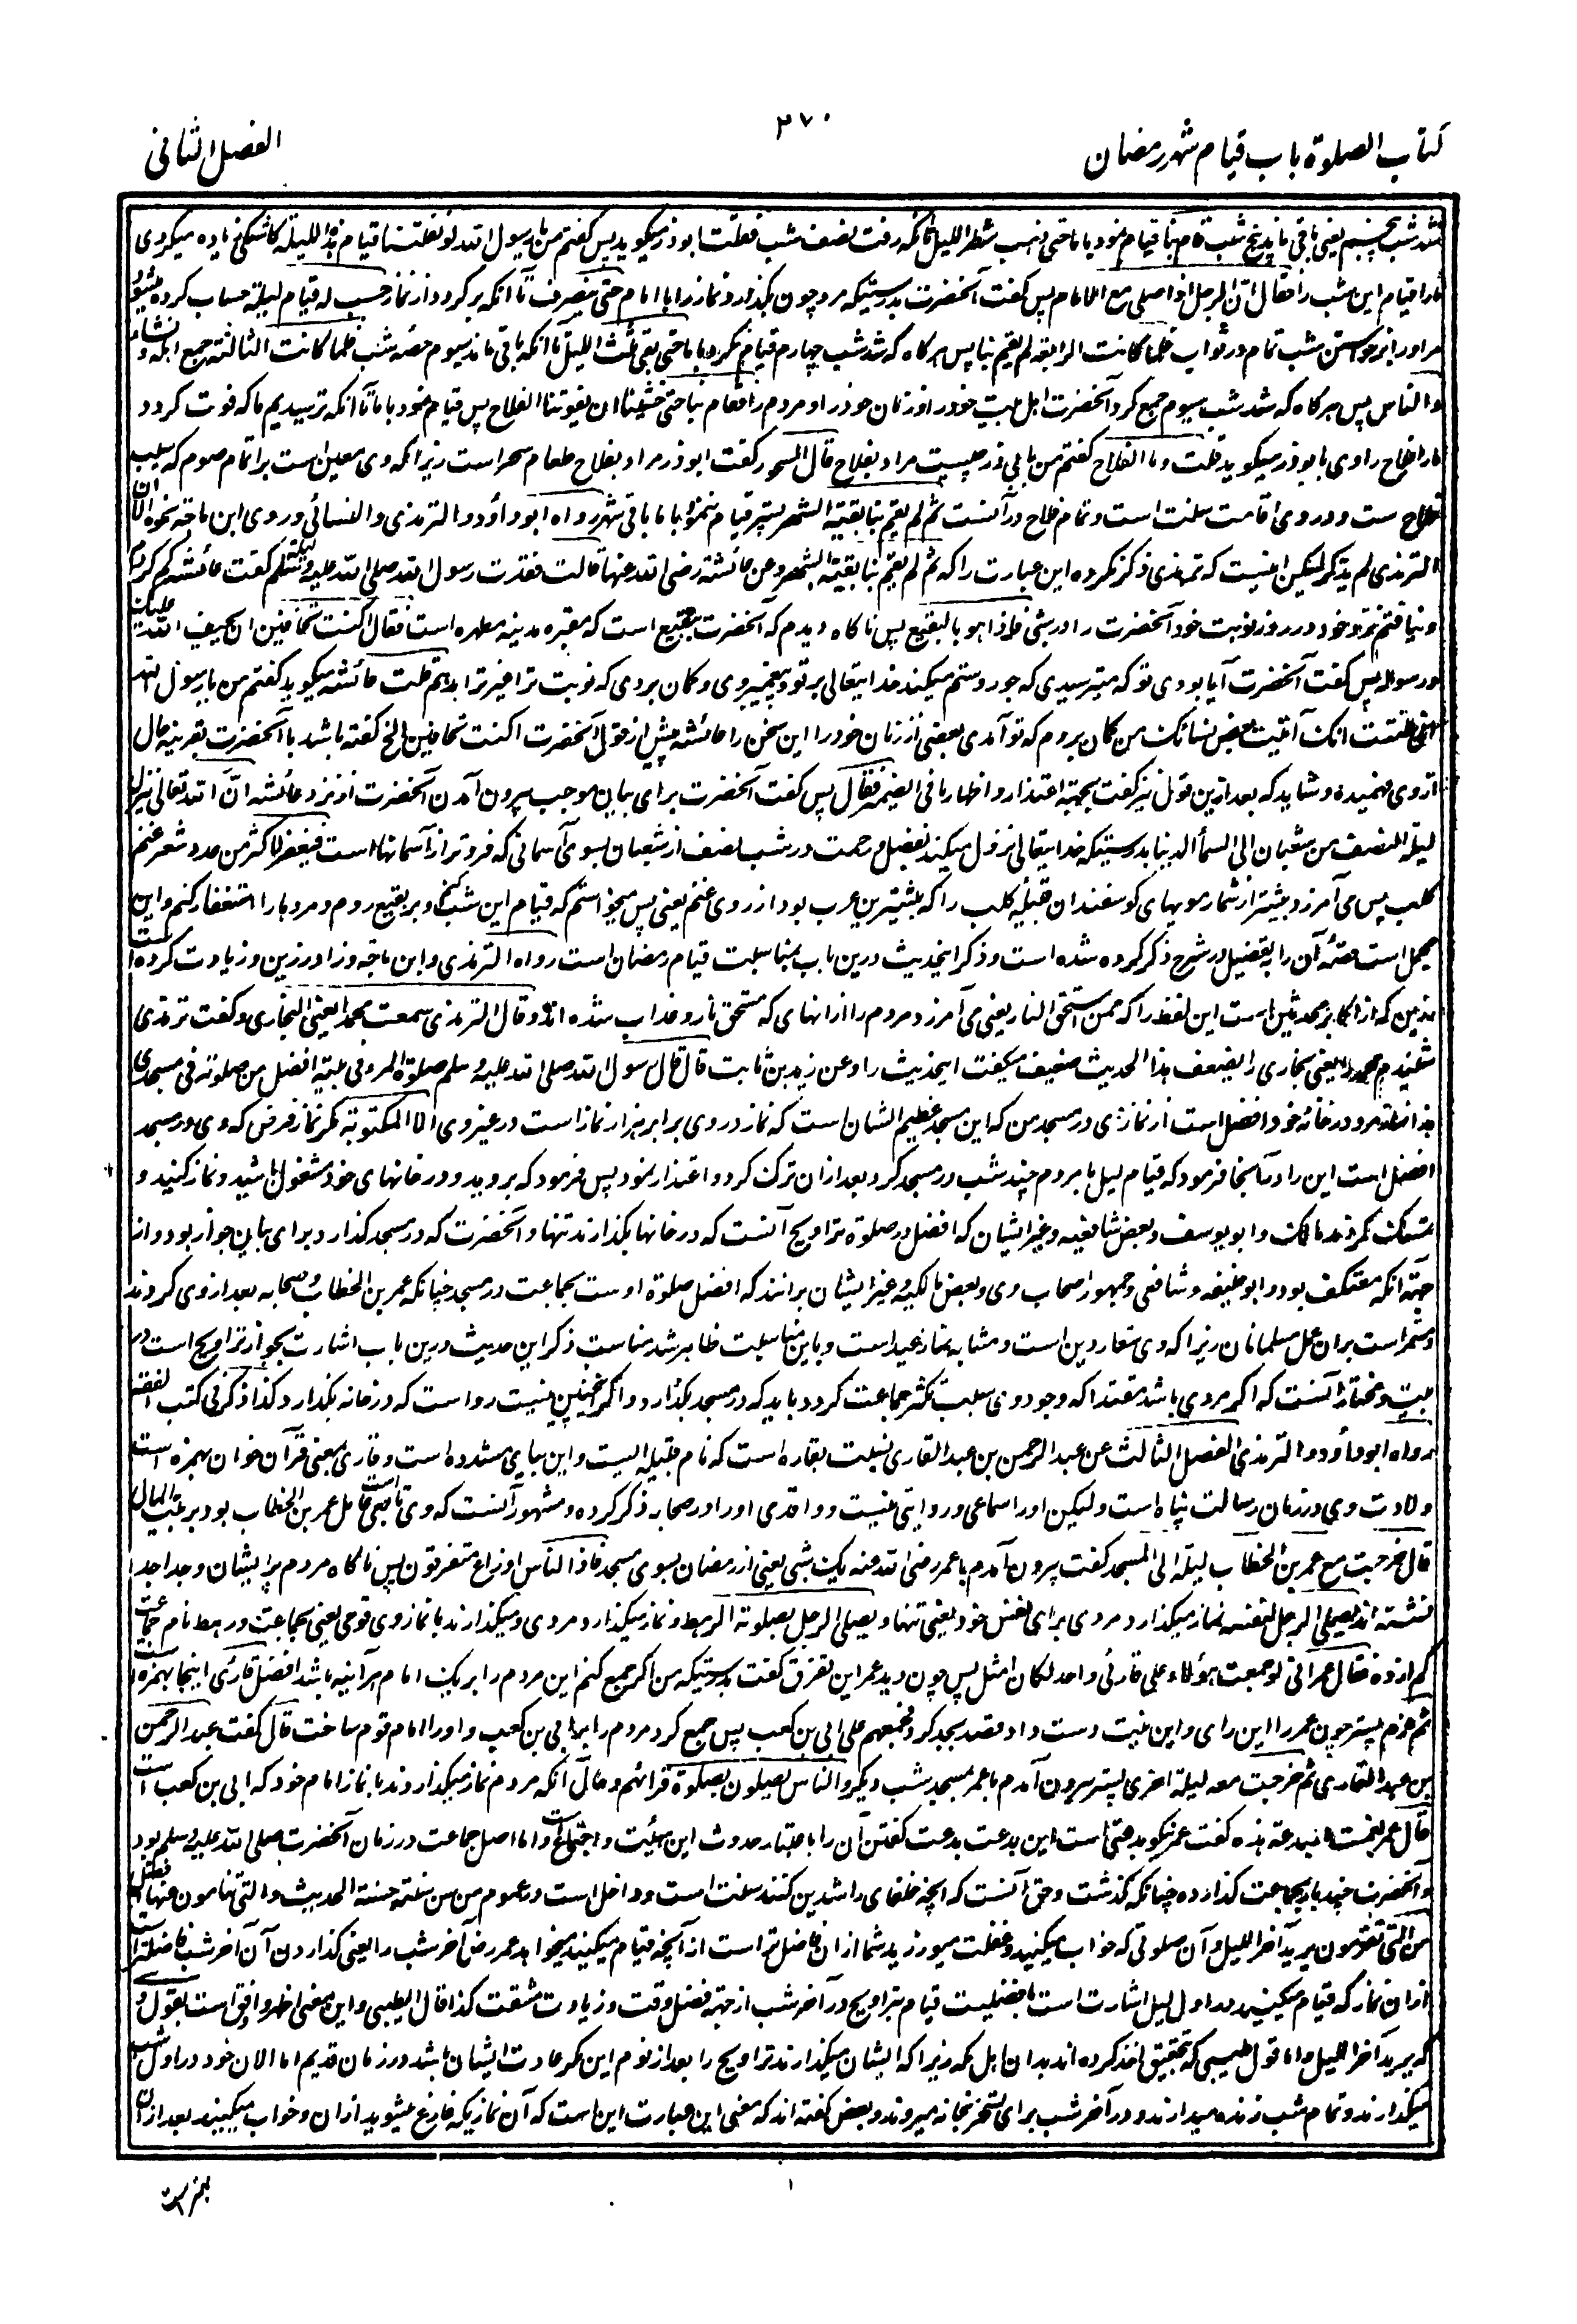 کتاب الصلوة باب قیام شهر رمضان
۳۷۰
الفصل الثانی
شد شب پنجم یعنی باقی ماند پنج شب قام بنا قیام نمود با ما حتی ذهب شطر اللیل تا آنکه رفت نصف شب فقلت ابوذر میگوید پس گفتم من یا رسول الله لو نفلتنا قیام هذه اللیلة کاشکی زیاده میکردی
ما را قیام این شب را فقال ان الرجل اذا صلی مع الامام پس گفت آنحضرت بدرستیکه مرد چون بگذارد نماز را با امام حتی ینصرف تا آنکه برگردد از نماز حسب له قیام لیلة حساب کرده میشود
مر او را برخواستن شب تمام در ثواب فلما کانت الرابعة لم یقم بنا پس هرگاه که شد شب چهارم قیام نکرد با ما حتی بقی ثلث اللیل تا آنکه باقی ماند سیوم حصه شب فلما کانت الثالثة جمع اهله و نساءه
والناس پس هرگاه که شد شب سیوم جمع کرد آنحضرت اهل بیت خود را و زنان خود را و مردم را فقام بنا حتی خشینا ان یفوتنا الفلاح پس قیام نمود با ما تا آنکه ترسیدیم ما که فوت گردد
ما را فلاح راوی با بوذر میگوید قلت وما الفلاح گفتم من بابی ذر چیست مراد بفلاح قال السحور گفت ابوذر مراد بفلاح طعام سحر است زیرا که وی معین است بر اتمام صوم که سبب
فلاح ست و در وی اقامت سنت است و تمام فلاح در آنست ثم لم یقم بنا بقیة الشهر پستر قیام ننمود با ما باقی شهر رواه ابو داؤد والترمذی والنسائی وروی ابن ماجه نحوه الا ان
الترمذی لم یذکر لیکن اینست که ترمذی ذکر نکرده این عبارت را که ثم لم یقم بنا بقیة الشهر وعن عائشة رضی الله عنها قالت فقدت رسول الله صلی الله علیه وسلم لیلة گفت عائشه گم کردم
و نیافتم نزد خود در روز نوبت خود آنحضرت را در شبی فاذا هو بالبقیع پس ناگاه دیدم که آنحضرت ببقیع است که مقبره مدینه مطهره است فقال اکنت تخافین ان یحیف الله علیک
ورسوله پس گفت آنحضرت آیا بودی تو که میترسیدی که جور و ستم میکند خدا یتعالی بر تو و پیغمبر وی و گمان بردی که نوبت ترا غیر ترا بدهم قلت عائشه میگوید گفتم من یا رسول الله
انی ظننت انک اتیت بعض نسائک من گمان بردم که تو آمدی بعضی از زنان خود را این سخن را عائشه پیش از قول آنحضرت اکنت تخافین الخ گفته باشد یا آنحضرت بقرینه حال
از وی فهمیده و شاید که بعد ازین قول نیز گفت بجهته اعتذار و اظهار ما فی الضمیر فقال پس گفت آنحضرت برای بیان موجب بیرون آمدن آنحضرت از نزد عائشه ان الله تعالی ینزل
لیلة النصف من شعبان الی السماء الدنیا بدرستیکه خدا یتعالی نزول میکند بفضل و رحمت در شب نصف از شعبان بسوی آسمانی که فروتر از آسمانها است فیغفر لاکثر من عدد شعر غنم
کلب پس می آمرزد بیشتر از شمار مویهای گوسفندان قبیله کلب را که بیشترین عرب بود از روی غنم یعنی پس میخواستم که قیام این شب کنم و بر بقیع روم و مردها را استغفار کنم و این
مجمل است قصه آن را بتفصیل در شرح ذکر کرده شده است و ذکر این حدیث درین باب بمناسبت قیام رمضان است رواه الترمذی وابن ماجه وزاد رزین و زیادت کرده است
رزین که از اکابر محدثین است این لفظ را که ممن استحق النار یعنی می آمرزد مردم را از انهای که مستحق نار و عذاب شده اند وقال الترمذی سمعت محمدا یعنی البخاری و گفت ترمذی
شنیدم محمد را یعنی بخاری را یضعف هذا الحدیث ضعیف میگفت این حدیث را وعن زید بن ثابت قال قال رسول الله صلی الله علیه وسلم صلوة المرء فی بیته افضل من صلوته فی مسجدی
هذا نماز مرد در خانه خود افضل است از نماز وی در مسجد من که این مسجد عظیم الشان است که نماز در وی برابر هزار نماز است در غیر وی الا المکتوبة مگر نماز فرض که وی در مسجد
افضل است این را در آنجا فرمود که قیام لیل با مردم چند شب در مسجد کرد بعد ازان ترک کرد و اعتذار نمود پس فرمود که بروید و در خانهای خود مشغول باشید و نماز کنید و
تمسک کردند مالک و ابو یوسف و بعض شافعیه و غیر ایشان که افضل در صلوة تراویح آنست که در خانها بگذارند تنها و آنحضرت که در مسجد گذارد برای بیان جواز بود و از
جهة آنکه معتکف بود و ابو حنیفه و شافعی و جمهور اصحاب وی و بعض مالکیه و غیر ایشان برانند که افضل صلوة او ست بجماعت در مسجد چنانکه عمر بن الخطاب و صحابه بعد از وی کردند
و مستمر است بران عمل مسلمانان زیرا که وی شعار دین است و مشابه بنماز عید است و باین مناسبت ظاهر شد مناسبت ذکر این حدیث درین باب اشارت بجواز تراویح است در
بیت و مختار آنست که اگر مردی باشد مقتدا که وجود وی سبب تکثر جماعت گردد باید که در مسجد بگذارد و اگر همچنین نیست روا است که در خانه بگذارد کذا ذکر فی کتب الفقه
رواه ابو داؤد والترمذی الفصل الثالث عن عبد الرحمن بن عبد القاری نسبت بقاره است که نام قبیله ایست و این بیای مشدده است و قاری بمعنی قرآن خوان بهمزه است
ولادت وی در زمان رسالت پناه است و لیکن او را سماعی و روایتی نیست و واقدی او را در صحابه ذکر کرده و مشهور آنست که وی تابعی است عامل عمر بن الخطاب بود بر بیت المال
قال خرجت مع عمر بن الخطاب لیلة الی المسجد گفت بیرون آمدم با عمر رضی الله عنه یک شبی یعنی از رمضان بسوی مسجد فاذا الناس اوزاع متفرقون پس ناگاه مردم پریشان و جدا جدا
نشسته اند یصلی الرجل لنفسه نماز میگذارد مردی برای نفس خود یعنی تنها ویصلی الرجل فیصلی بصلوته الرهط و نماز میگذارد مردی و میگذارند با نماز وی قومی یعنی بجماعت و رهط نام جماعت
کم از ده فقال عمر انی لو جمعت هؤلاء علی قارئ واحد لکان امثل پس چون دید عمر این تفرق گفت بدرستیکه من اگر جمع کنم این مردم را بر یک امام هرآینه باشد افضل قارئ اینجا بهمزه است
ثم عزم پستر چون عمر را این رای و این نیت دست داد قصد بجد کرد فجمعهم علی ابی بن کعب پس جمع کرد مردم را بر ابی بن کعب و او را امام قوم ساخت قال گفت عبد الرحمن
بن عبد القاری ثم خرجت معه لیلة اخری پستر بیرون آمدم با عمر بمسجد شب دیگر والناس یصلون بصلوة قارئهم وحال آنکه مردم نماز میگذاردند با نماز امام خود که ابی بن کعب است
قال عمر نعمت البدعة هذه گفت عمر نیکو بدعتی است این بدعت بدعت گفتن آن را باعتبار حدوث این هیئت و اجتماع است و اما اصل جماعت در زمان آنحضرت صلی الله علیه وسلم بود
و آنحضرت چند بار بجماعت گذارده چنانکه گذشت و حق آنست که آنچه خلفای راشدین کنند سنت است و داخل است در عموم من سن سنة حسنة الحدیث والتی تنامون عنها افضل
من التی تقومون یرید آخر اللیل و آن صلوتی که خواب میکنید و غفلت میورزید شما ازان فاضل تر است از آنچه قیام میکنید میخواهد عمر رض آخر شب را یعنی گذاردن آن آخر شب فاضلتر است
ازان نماز که قیام میکنید در اول لیل اشارت است با فضیلت قیام بتراویح در آخر شب از جهة فضل وقت و زیادت مشقت کذا قال الطیبی و این معنی اظهر و اوفق است بقول
که یرید آخر اللیل و اما قول طیبی که بتحقیق اخذ کرده اند بدان اهل مکه زیرا که ایشان میگذارند تراویح را بعد از نوم این مگر عادت ایشان باشد در زمان قدیم اما الان خود در اول شب
میگذارند و تمام شب زنده میدارند و در آخر شب برای تسحر بخانه میروند و بعض گفته اند که معنی این عبارت این است که آن نمازیکه فارغ میشوید ازان و خواب میکنید بعد ازان
بهتر است